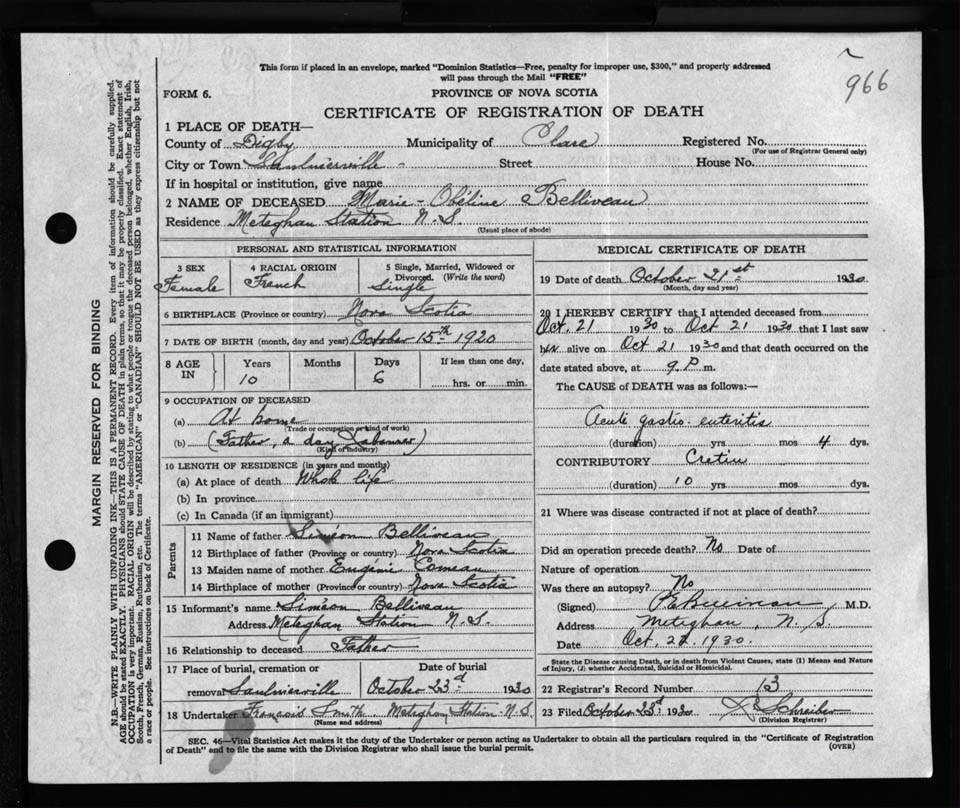 966
This form if placed in an envelope, marked "Dominion Statistics—Free, penalty for improper use, $300," and properly addressed
will pass through the Mail "FREE"
FORM 6.
PROVINCE OF NOVA SCOTIA
CERTIFICATE OF REGISTRATION OF DEATH
1 PLACE OF DEATH—
County of Digby Municipality of Clare Registered No.
(For use of Registrar General only)
City or Town Saulnierville Street House No.
If in hospital or institution, give name
2 NAME OF DECEASED Marie-Obéline Belliveau
Residence Meteghan Station N.S.
(Usual place of abode)
PERSONAL AND STATISTICAL INFORMATION
3 SEX
Female
4 RACIAL ORIGIN
French
5 Single, Married, Widowed or
Divorced. (Write the word)
Single
6 BIRTHPLACE (Province or country) Nova Scotia
7 DATE OF BIRTH (month, day and year) October 15th 1920
8 AGE
IN
Years
10
Months
Days
6
If less than one day,
hrs. or min.
9 OCCUPATION OF DECEASED
(a) At home
(Trade or occupation or kind of work)
(b) (Father, a day Labourer)
(Kind of industry)
10 LENGTH OF RESIDENCE (in years and months)
(a) At place of death Whole life
(b) In province
(c) In Canada (if an immigrant)
Parents
11 Name of father Siméon Belliveau
12 Birthplace of father (Province or country) Nova Scotia
13 Maiden name of mother Eugénie Comeau
14 Birthplace of mother (Province or country) Nova Scotia
15 Informant's name Siméon Belliveau
Address Meteghan Station N.S.
16 Relationship to deceased Father
17 Place of burial, cremation or
removal Saulnierville
Date of burial
October 23d 1930
18 Undertaker Francois Smith Meteghan Station N.S.
(Name and address)
MEDICAL CERTIFICATE OF DEATH
19 Date of death October 21st 1930
(Month, day and year)
20 I HEREBY CERTIFY that I attended deceased from
Oct. 21 1930 to Oct 21 1930 that I last saw
her alive on Oct 21 1930 and that death occurred on the
date stated above, at 9. P. m.
The CAUSE of DEATH was as follows:—
Acute gastro-enteritis
(duration) yrs. mos 4 dys.
CONTRIBUTORY Cretin
(duration) 10 yrs mos dys.
21 Where was disease contracted if not at place of death?
Did an operation precede death? No Date of
Nature of operation
Was there an autopsy? No
(Signed) Belliveau M.D.
Address Meteghan, N.S.
Date Oct. 22 1930.
State the Disease causing Death, or in death from Violent Causes, state (1) Means and Nature
of Injury, (2) whether Accidental, Suicidal or Homicidal.
22 Registrar's Record Number 13
23 Filed October 23d 1930 Schreiber
(Division Registrar)
SEC. 46—Vital Statistics Act makes it the duty of the Undertaker or person acting as Undertaker to obtain all the particulars required in the "Certificate of Registration
of Death" and to file the same with the Division Registrar who shall issue the burial permit.
(OVER)
MARGIN RESERVED FOR BINDING
N.B.—WRITE PLAINLY WITH UNFADING INK—THIS IS A PERMANENT RECORD. Every item of information should be carefully supplied.
AGE should be stated EXACTLY. PHYSICIANS should STATE CAUSE OF DEATH in plain terms, so that it may be properly classified. Exact statement of
OCCUPATION is very important. RACIAL ORIGIN will be described by stating to what people or tongue the deceased person belonged, whether English, Irish,
Scotch, French, German, Russian, Ruthenian, etc. The terms "AMERICAN" or "CANADIAN" SHOULD NOT BE USED as they express citizenship but not
a race or people. See instructions on back of Certificate.